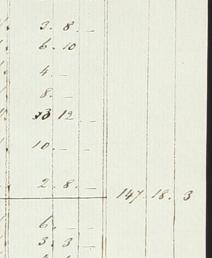 3. 8. –
6. 10
4. –
8. –
13 12 –
10. – –
2. 8. –
147. 18. 3
6. – –
3. 3 –